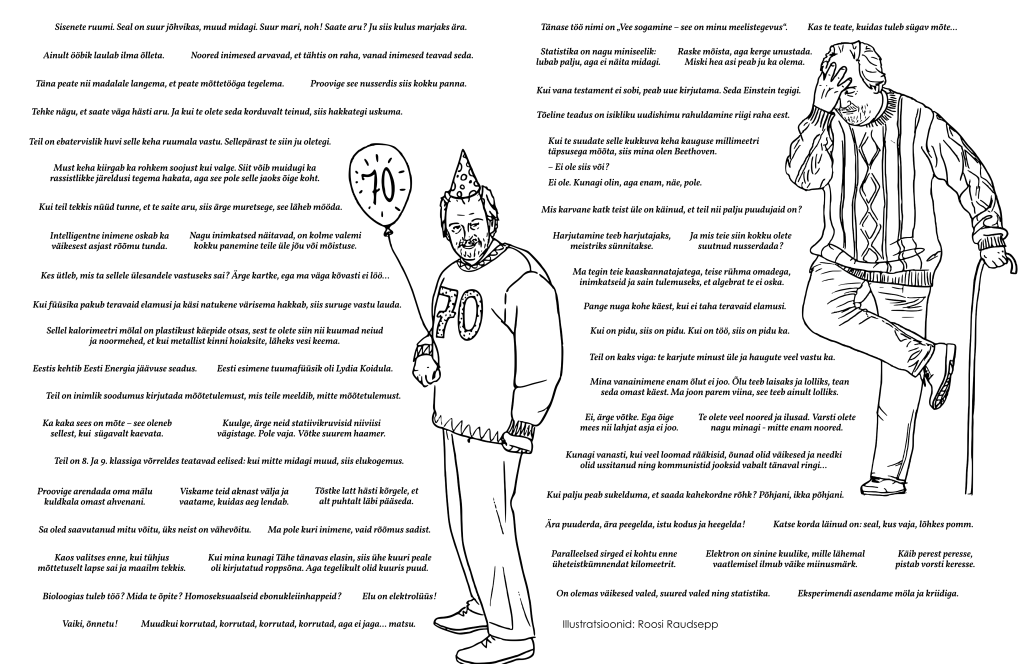 Sisenete ruumi. Seal on suur jõhvikas, muud midagi. Suur mari, noh! Saate aru? Ju siis kulus marjaks ära.
Ainult ööbik laulab ilma õlleta. Noored inimesed arvavad, et tähtis on raha, vanad inimesed teavad seda.
Täna peate nii madalale langema, et peate mõttetööga tegelema. Proovige see nusserdis siis kokku panna.
Tehke nägu, et saate väga hästi aru. Ja kui te olete seda korduvalt teinud, siis hakkategi uskuma.
Teil on ebatervislik huvi selle keha ruumala vastu. Sellepärast te siin ju oletegi.
Must keha kiirgab ka rohkem soojust kui valge. Siit võib muidugi ka
rassistlikke järeldusi tegema hakata, aga see pole selle jaoks õige koht.
Kui teil tekkis nüüd tunne, et te saite aru, siis ärge muretsege, see läheb mööda.
Intelligentne inimene oskab ka
väikesest asjast rõõmu tunda.
Nagu inimkatsed näitavad, on kolme valemi
kokku panemine teile üle jõu või mõistuse.
Kes ütleb, mis ta sellele ülesandele vastuseks sai? Ärge kartke, ega ma väga kõvasti ei löö...
Kui füüsika pakub teravaid elamusi ja käsi natukene värisema hakkab, siis suruge vastu lauda.
Sellel kalorimeetri mõlal on plastikust käepide otsas, sest te olete siin nii kuumad neiud
ja noormehed, et kui metallist kinni hoiaksite, läheks vesi keema.
Eestis kehtib Eesti Energia jäävuse seadus. Eesti esimene tuumafüüsik oli Lydia Koidula.
Teil on inimlik soodumus kirjutada mõõtetulemust, mis teile meeldib, mitte mõõtetulemust.
Ka kaka sees on mõte – see oleneb
sellest, kui sügavalt kaevata.
Kuulge, ärge neid statiivikruvisid niiviisi
vägistage. Pole vaja. Võtke suurem haamer.
Teil on 8. Ja 9. klassiga võrreldes teatavad eelised: kui mitte midagi muud, siis elukogemus.
Proovige arendada oma mälu
kuldkala omast ahvenani.
Viskame teid aknast välja ja
vaatame, kuidas aeg lendab.
Tõstke latt hästi kõrgele, et
alt puhtalt läbi pääseda.
Sa oled saavutanud mitu võitu, üks neist on vähevõitu. Ma pole kuri inimene, vaid rõõmus sadist.
Kaos valitses enne, kui tühjus
mõttetuselt lapse sai ja maailm tekkis.
Kui mina kunagi Tähe tänavas elasin, siis ühe kuuri peale
oli kirjutatud roppsõna. Aga tegelikult olid kuuris puud.
Bioloogias tuleb töö? Mida te õpite? Homoseksuaalseid ebonukleiinhappeid? Elu on elektrolüüs!
Vaiki, õnnetu! Muudkui korrutad, korrutad, korrutad, korrutad, aga ei jaga... matsu.
70
70
Tänase töö nimi on „Vee sogamine – see on minu meelistegevus“. Kas te teate, kuidas tuleb sügav mõte...
Statistika on nagu miniseelik:
lubab palju, aga ei näita midagi.
Raske mõista, aga kerge unustada.
Miski hea asi peab ju ka olema.
Kui vana testament ei sobi, peab uue kirjutama. Seda Einstein tegigi.
Tõeline teadus on isikliku uudishimu rahuldamine riigi raha eest.
Kui te suudate selle kukkuva keha kauguse millimeetri
täpsusega mõõta, siis mina olen Beethoven.
– Ei ole siis või?
Ei ole. Kunagi olin, aga enam, näe, pole.
Mis karvane katk teist üle on käinud, et teil nii palju puudujaid on?
Harjutamine teeb harjutajaks,
meistriks sünnitakse.
Ja mis teie siin kokku olete
suutnud nusserdada?
Ma tegin teie kaaskannatajatega, teise rühma omadega,
inimkatseid ja sain tulemuseks, et algebrat te ei oska.
Pange nuga kohe käest, kui ei taha teravaid elamusi.
Kui on pidu, siis on pidu. Kui on töö, siis on pidu ka.
Teil on kaks viga: te karjute minust üle ja haugute veel vastu ka.
Mina vanainimene enam õlut ei joo. Õlu teeb laisaks ja lolliks, tean
seda omast käest. Ma joon parem viina, see teeb ainult lolliks.
Ei, ärge võtke. Ega õige
mees nii lahjat asja ei joo.
Te olete veel noored ja ilusad. Varsti olete
nagu minagi - mitte enam noored.
Kunagi vanasti, kui veel loomad rääkisid, õunad olid väikesed ja needki
olid ussitanud ning kommunistid jooksid vabalt tänaval ringi...
Kui palju peab sukelduma, et saada kahekordne rõhk? Põhjani, ikka põhjani.
Ära puuderda, ära peegelda, istu kodus ja heegelda! Katse korda läinud on: seal, kus vaja, lõhkes pomm.
Paralleelsed sirged ei kohtu enne
üheteistkümnendat kilomeetrit.
Elektron on sinine kuulike, mille lähemal
vaatlemisel ilmub väike miinusmärk.
Käib perest peresse,
pistab vorsti keresse.
On olemas väikesed valed, suured valed ning statistika. Eksperimendi asendame möla ja kriidiga.
Illustratsioonid: Roosi Raudsepp